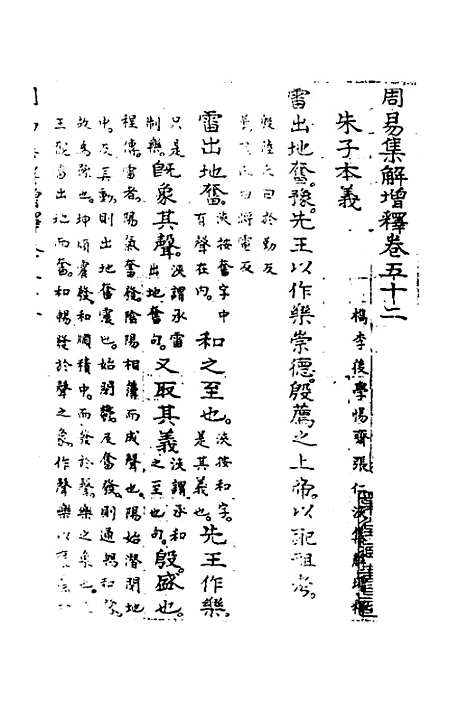 周易集解增釋卷五十二
檇李後學惕齋張仁浹集解增釋
朱子本義
雷出地奮。豫。先王以作樂崇德。殷薦之上帝。以配祖考。
殷陸氏曰於勤反
薦 氏曰將電反
雷出地奮。浹按奮字中有聲在內。和之至也。浹按和字。是其義也。先王作樂。
只是制樂。既象其聲。浹謂承雷出地奮句。又取其義。浹謂承和之至也句。殷盛也。
程傳。雷者。陽氣奮發。陰陽相薄而成聲也。陽始潛閉地
中。及其動。則出地奮震也。始閉鬱。及奮發。則通暢和豫。
故為豫也。坤順震發。和順積中。而發於聲。樂之象也。
王觀雷出地而奮。和暢發於聲之象。作聲樂以